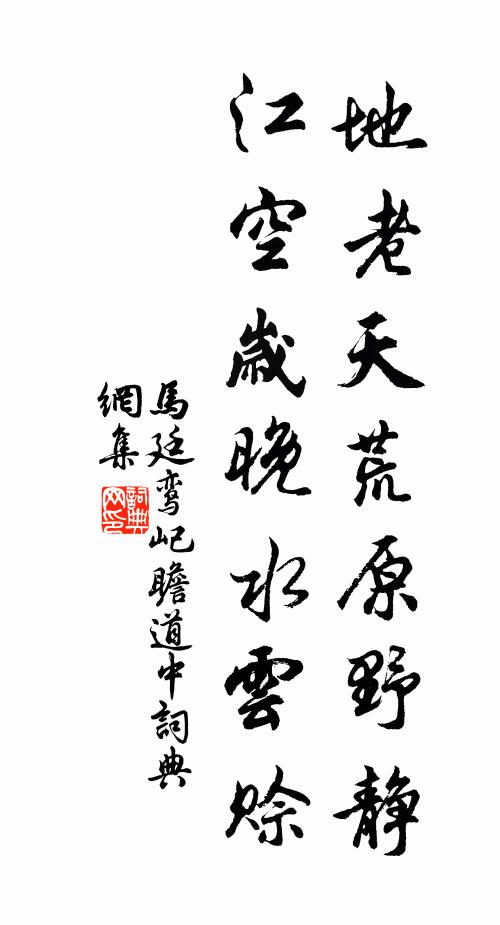 地老天荒原野静
江空歲晚水雲賒
馬廷鸞屺瞻道中詞典
網集
詞典
网印